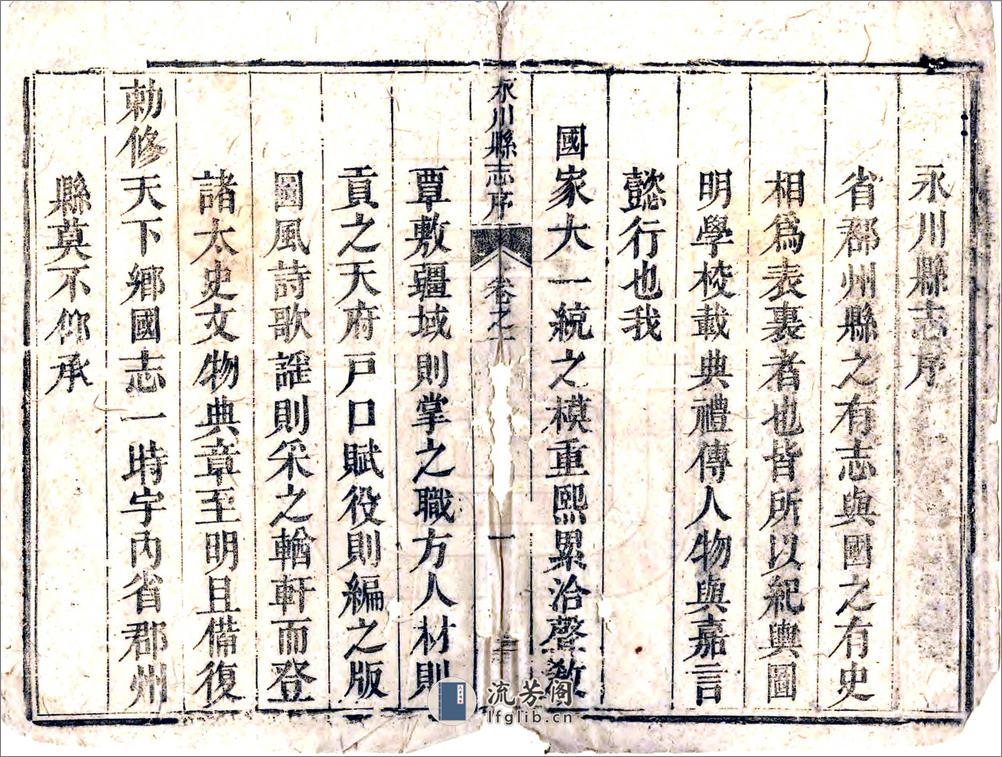 永川縣志序
省郡州縣之有志與國之有史
相爲表裏者也皆所以紀輿圖
明學校載典禮傳人物與嘉言
懿行也我
國家大一統之模重熙累洽聲敎
永川縣志序 卷之一 一
覃敷疆域則掌之職方人材則
貢之天府戶口賦役則編之版
圖風詩歌謡則采之輶軒而登
諸太史文物典章至明且備復
勅修天下鄉國志一時宇內省郡州
縣莫不仰承
流芳阁
lfglib.cn